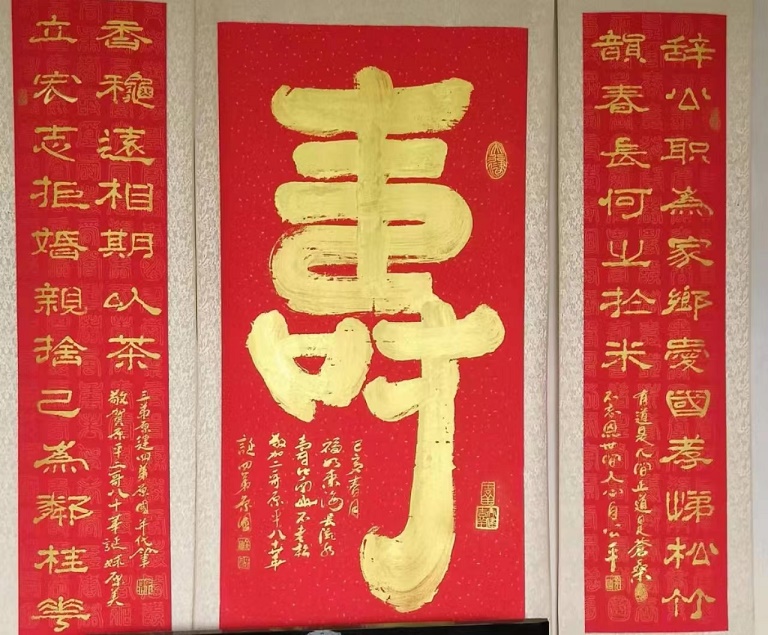 辞公職為家鄉愛國孝悌松竹
韻春長何止於米
有道是人间正道是蒼桑
不忘恩世间人心自公平
壽
己亥春月
福如東海長流水
壽比南山不老松
敬賀二哥原平八十華
誕四弟原國
立宏志拒婚親捨己為鄰桂花
香穐遠相期以茶
敬賀原平二哥八十華誕妹原美
三弟原建四弟原國